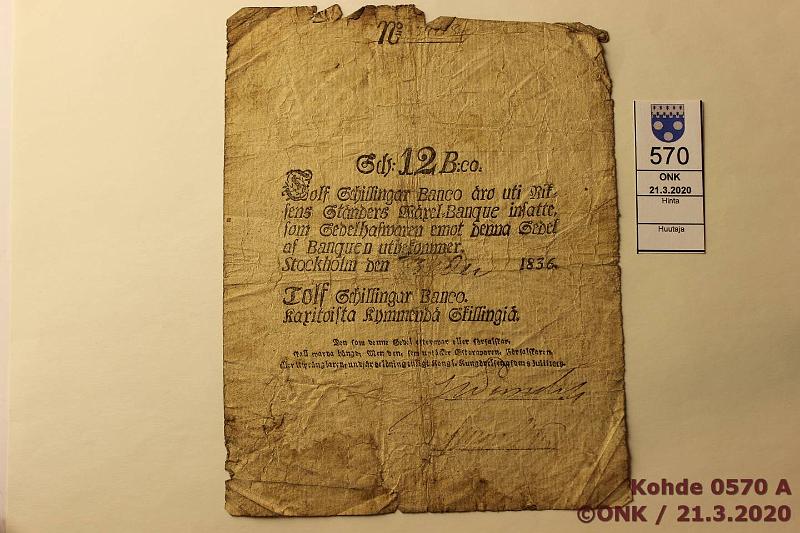 No
Sch: 12 B:co.
Tolf Schillingar Banco äro uti Rik-
sens Ständers Wäxel-Banque insatte,
som Sedelhafwaren emot denna Sedel
af Banquen utbekommer.
Stockholm den 1836.
Tolf Schillingar Banco.
Kaxitoista Kymmendä Skillingiä.
Den som denne Sedel efterapar eller förfalskar,
skall warda hängd; Men den, som uptäcker Efteraparen, Förfalskaren
570
ONK
21.3.2020
Hinta
Huutaja
Kohde 0570 A
©ONK / 21.3.2020